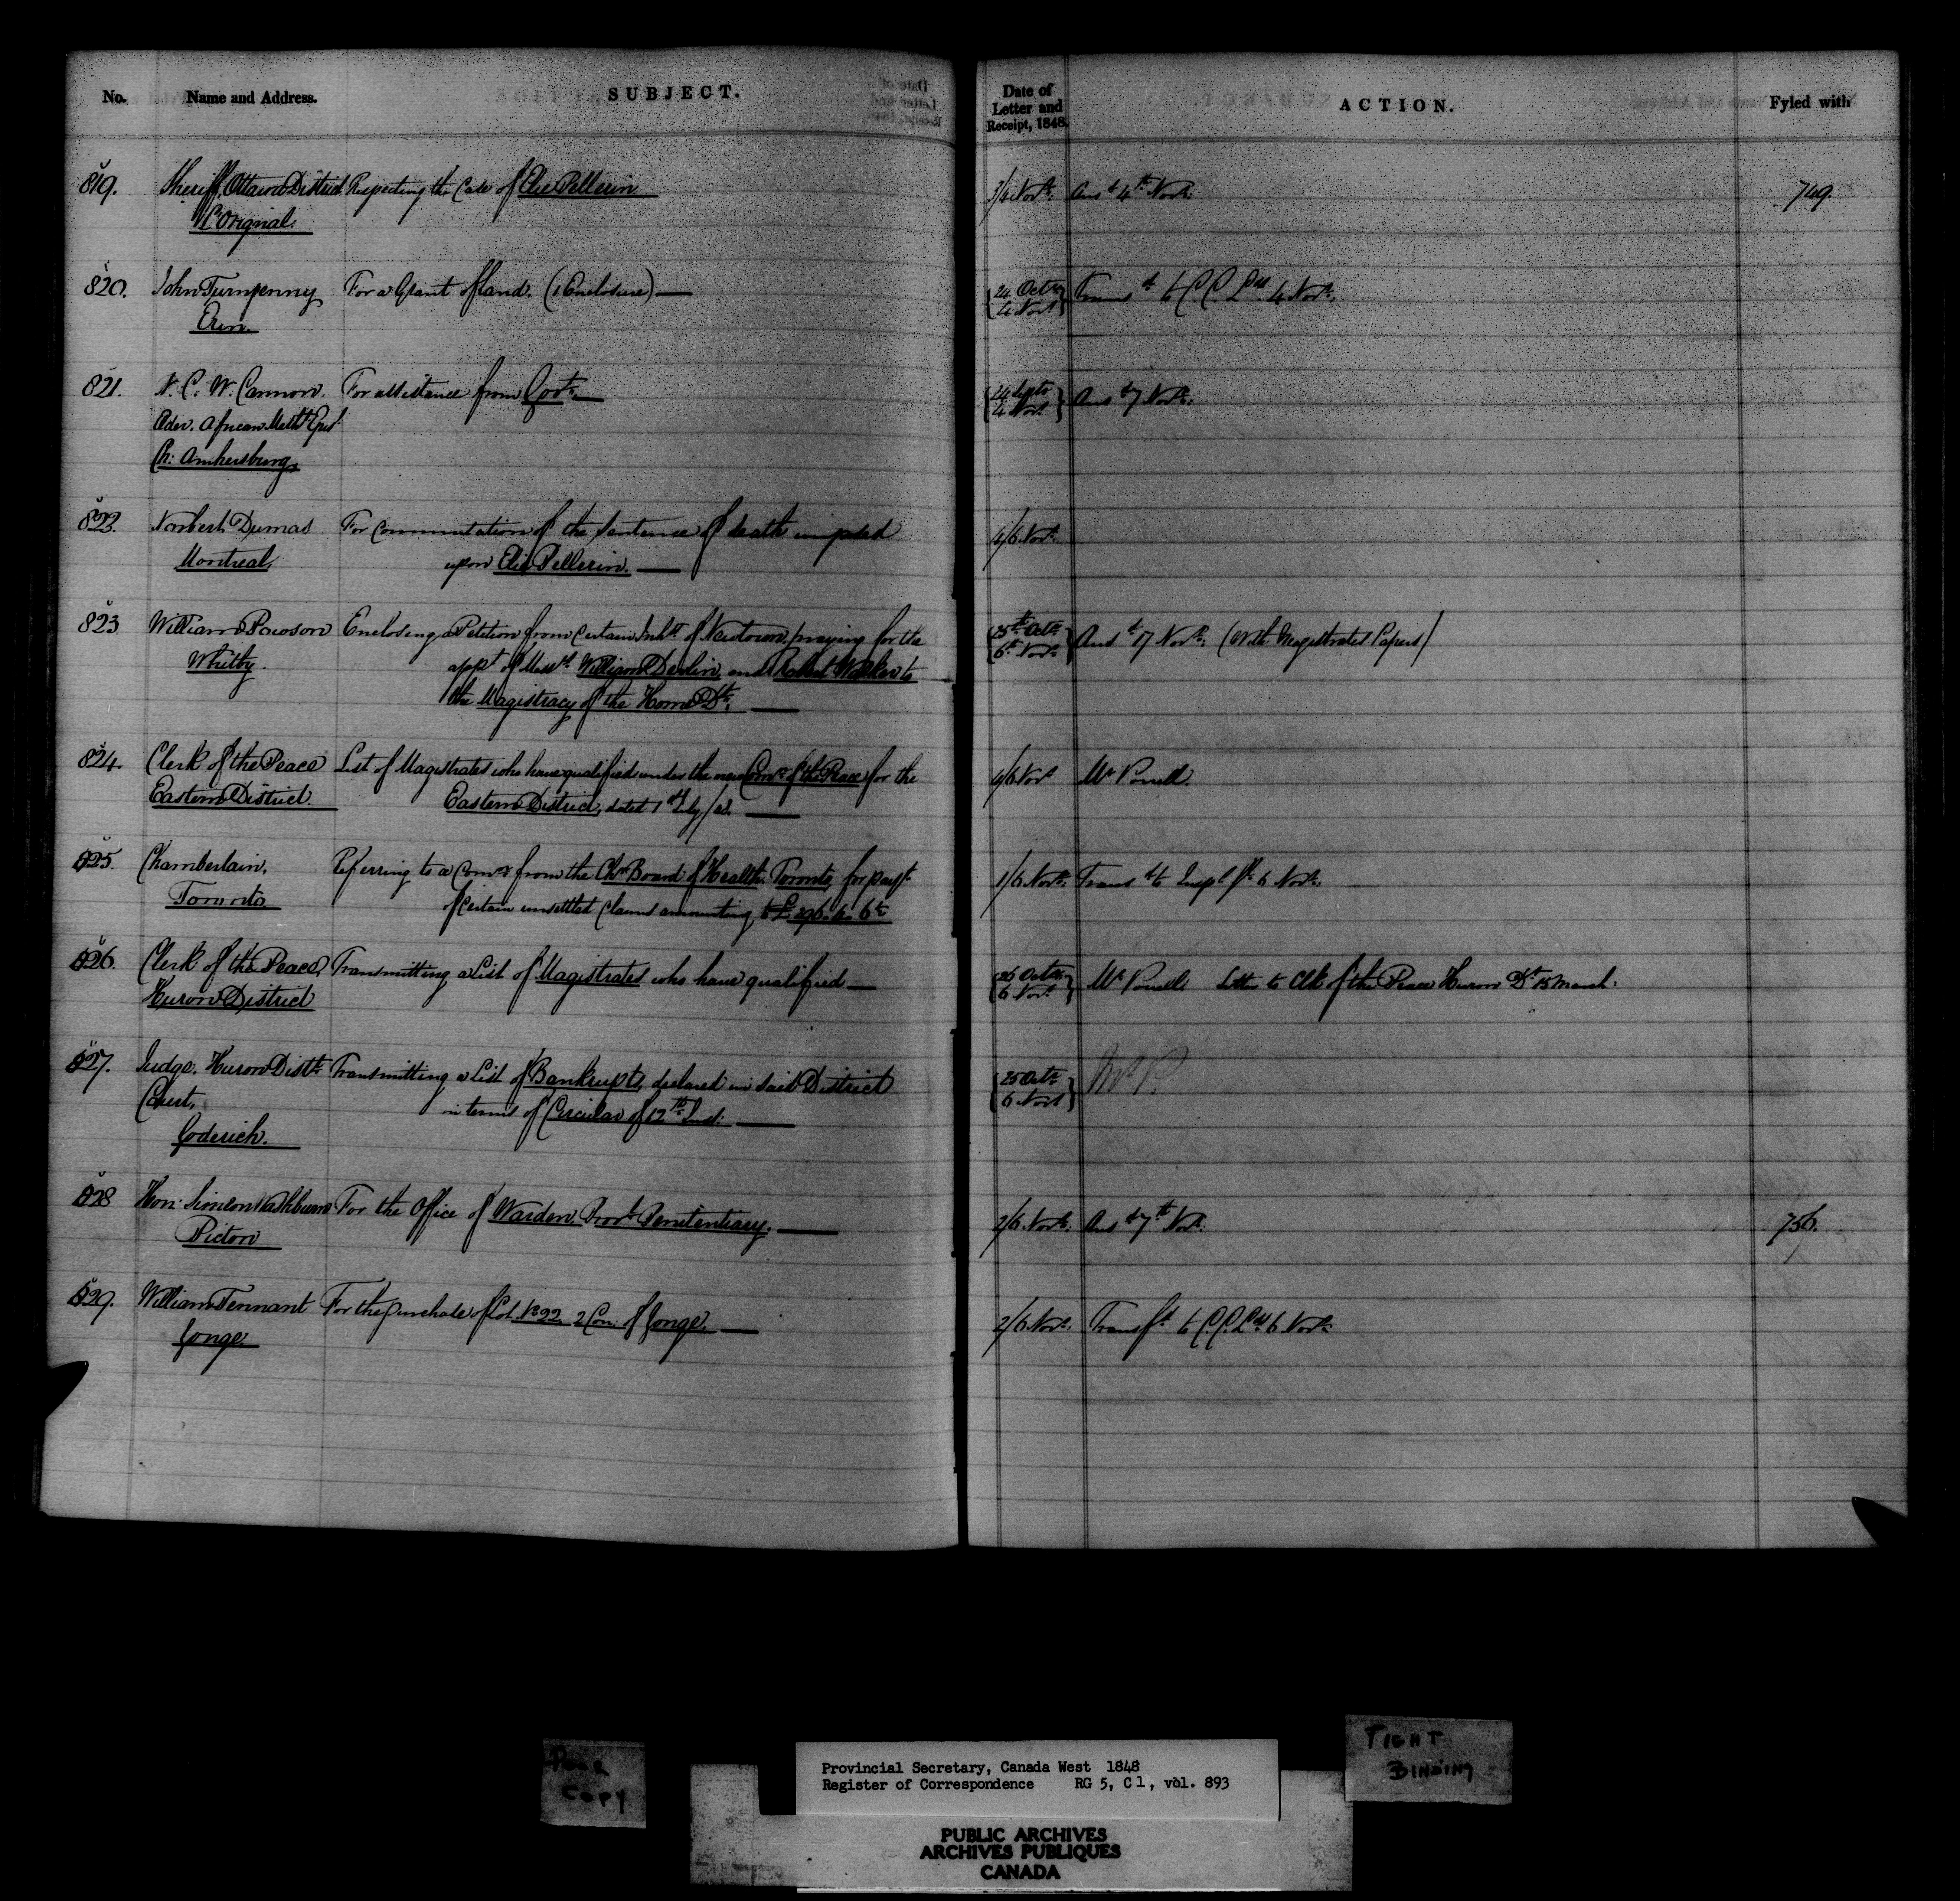 No. Name and Address. SUBJECT. Date of Letter and Receipt, 1848. ACTION. Fyled with
819. Sheriff, Ottawa District Respecting the Case of Elie Pellerin 3/4 Novr. Ansd 4th Novr. 749.
L'Orignal.
820. John Turnpenny For a Grant of land. (1 Enclosure) 24 Octr Transd to C.C. Lds 4 Novr.
Erin. 4 Novr
821. N. C. W. Cannon. For assistance from Govt. 24 Septr Ansd 7 Novr.
Elder. African Metht Epis. 4 Novr
Ch: Amhersburg
822. Norbert Dumas For Commutation of the Sentence of death imposed 4/6 Novr.
Montreal. upon Elie Pellerin.
823 William Pawson Enclosing a Petition from Certain Inhts of Newtown, praying for the 25th Octr Ansd 17 Novr. (With Magistrates Papers)
Whitby. appt of Messrs William Devlin and Robert Walker to 6th Novr
the Magistracy of the Home Dt.
824. Clerk of the Peace List of Magistrates who have qualified under the new Comn of the Peace for the 4/6 Novr Mr Powell.
Eastern District. Eastern District, dated 1st July/48.
825. Chamberlain, Referring to a Comn from the Chn Board of Health Toronto, for payt 1/6 Novr. Transd to Inspr Gl 6 Novr.
Toronto of Certain unsettled Claims amounting to £
826. Clerk of the Peace, Transmitting a List of Magistrates who have qualified 26 Octr Mr Powell. Letter to Clk of the Peace Huron Dt 15 March.
Huron District 6 Novr
827. Judge, Huron Distt Transmitting a List of Bankrupts, declared in said District 25 Octr Mr P.
Court, in terms of Circular of 12th Inst. 6 Novr
Goderich.
828 Hon: Simeon Washburn For the Office of Warden, Provl Penitentiary. 2/6 Novr. Ansd 7th Novr. 756.
Picton
829. William Tennant For the purchase of Lot No 22 2 Con: of Yonge. 2/6 Novr. Transfd to C.C. Lds 6 Novr
Yonge.
POOR COPY
TIGHT BINDING
Provincial Secretary, Canada West 1848
Register of Correspondence RG 5, C 1, vol. 893
PUBLIC ARCHIVES
ARCHIVES PUBLIQUES
CANADA